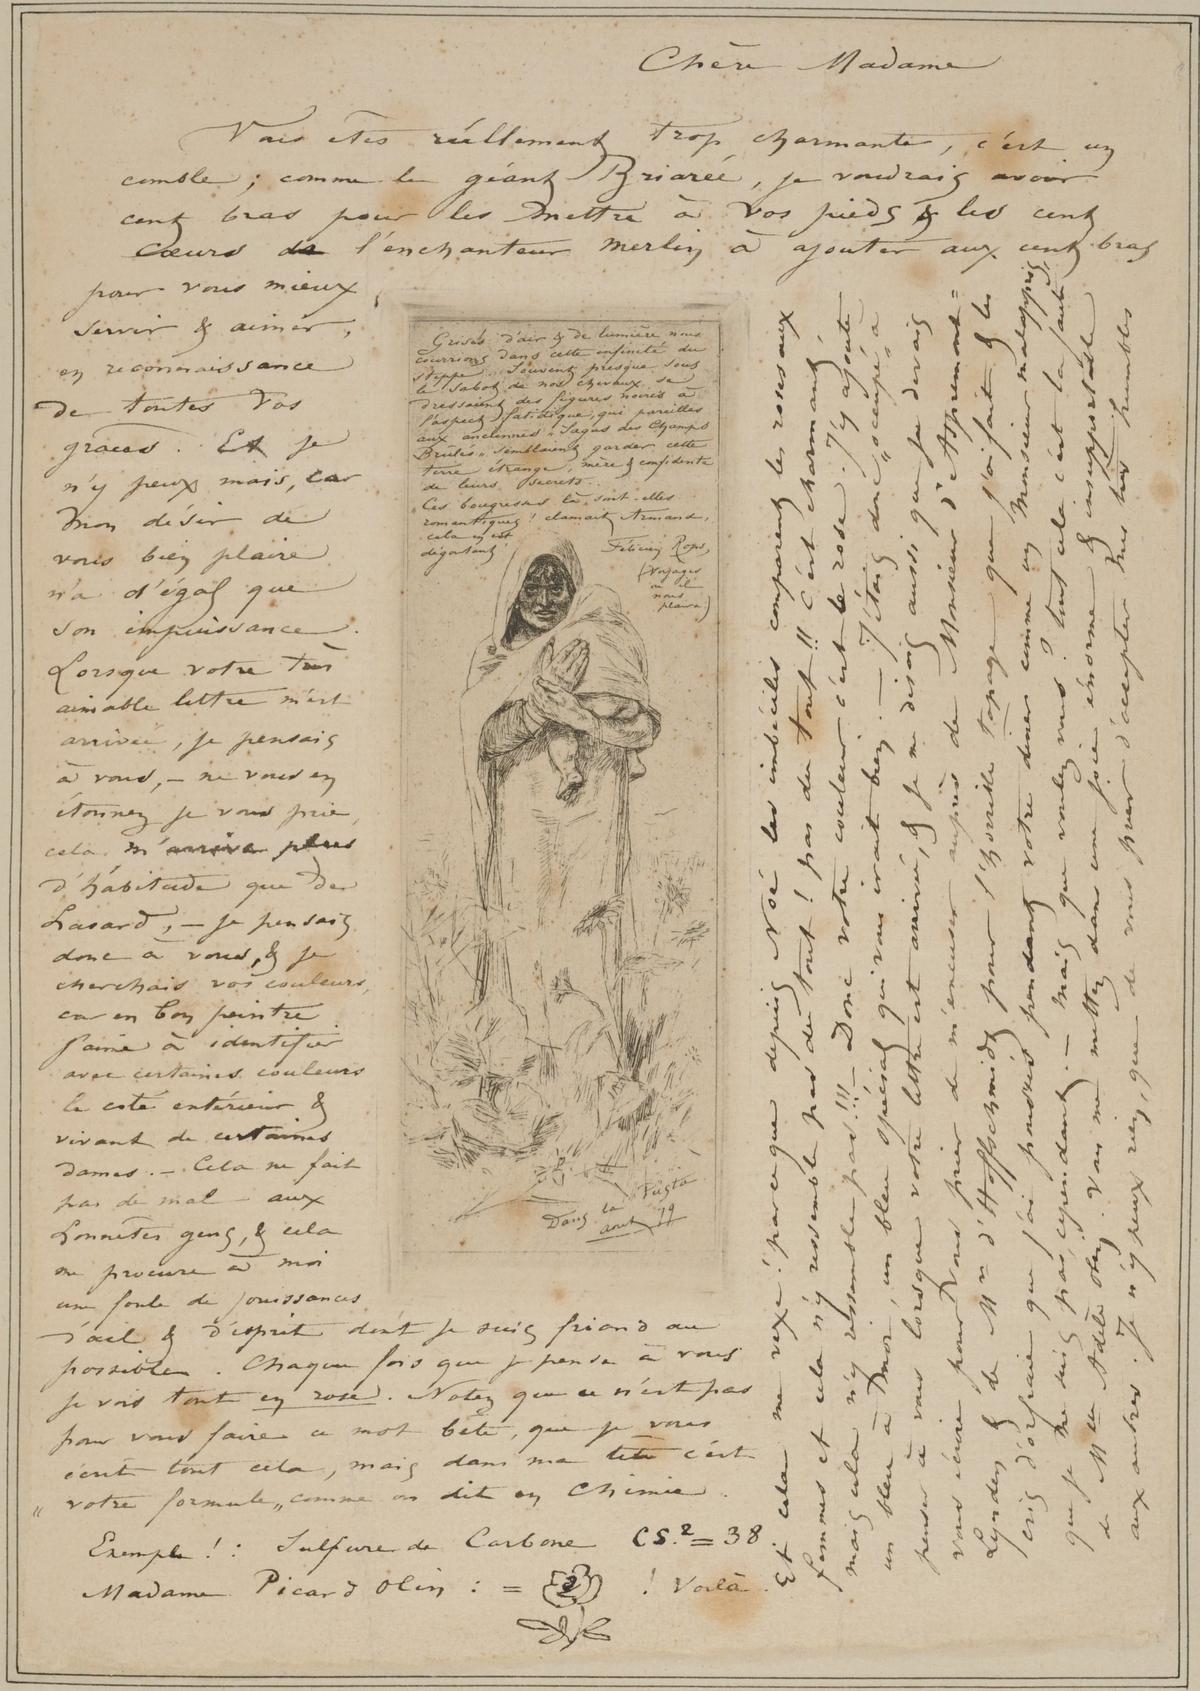 Chère Madame
Vous êtes réellement trop charmante, c'est un
comble ; comme le géant Briarée, je voudrais avoir
cent bras pour les mettre à vos pieds & les cent
cœurs de l'enchanteur Merlin à ajouter aux cent bras
pour vous mieux
servir & aimer,
en reconnaissance
de toutes vos
graces. Et je
n'y peux mais, car
mon désir de
vous bien plaire
n'a d'égal que
son impuissance.
Lorsque votre très
aimable lettre m'est
arrivée, je pensais
à vous, – ne vous en
étonnez je vous prie,
cela m'arrive plus
d'habitude que de
hasard, – je pensais
donc à vous, & je
cherchais vos couleurs,
car en bon peintre
j'aime à identifier
avec certaines couleurs
le coté extérieur &
vivant de certaines
dames. – Cela ne fait
pas de mal aux
honnêtes gens, & cela
me procure à moi
une foule de jouissances
d'œil & d'esprit dont je suis friand au
possible. Chaque fois que je pense à vous
je vois tout en rose. Notez que ce n'est pas
pour vous faire ce mot bête, que je vous
écrit tout cela, mais dans ma tête c'est
« votre formule » comme on dit en Chimie.
Exemple ! : Sulfure de Carbone CS.² = 38
Madame Picard Olin : = 2 ! Voilà.
Grisés d'air & de lumière nous
courrions dans cette infinité du
steppe. Souvent presque sous
le sabot de nos chevaux se
dressaient des figures noires à
l'aspect fatidique, qui pareilles
aux anciennes « Sagas des Champs
Brûlés » semblaient garder cette
terre étrange, mère & confidente
de leurs secrets.
« Ces bougresses là sont-elles
romantiques ! clamait Armand,
cela en est
dégoutant !
Félicien Rops,
(Voyages
où il
nous
plaira)
Dans la Puszta
août 79
Et cela me vexe ! parce que depuis Noé les imbéciles comparent les roses aux
femmes et cela n'y ressemble pas du tout ! pas du tout !! C'est charmant,
mais cela n'y ressemble pas !!! – Donc votre couleur c'est le rose. J'y ajoute
un bleu à moi, un bleu spécial qui vous irait bien. – J'étais donc « occupé » à
penser à vous lorsque votre lettre est arrivée, & je me disais aussi que je devais
vous écrire pour vous prier de m'excuser auprès de Monsieur d'Aspremont-
Lynden & de Mr d'Hoffschmidt pour l'horrible tapage que j'ai fait & les
cris d'orfraie que j'ai poussés pendant votre diner comme un Monsieur mal appris
que je ne suis pas, cependant. – Mais que voulez vous ? tout cela c'est la faute
de Mlle Adèle Olin ; Vous me mettez dans une joie énorme & insupportable
aux autres. Je n'y peux rien, que de vous prier d'accepter mes très humbles